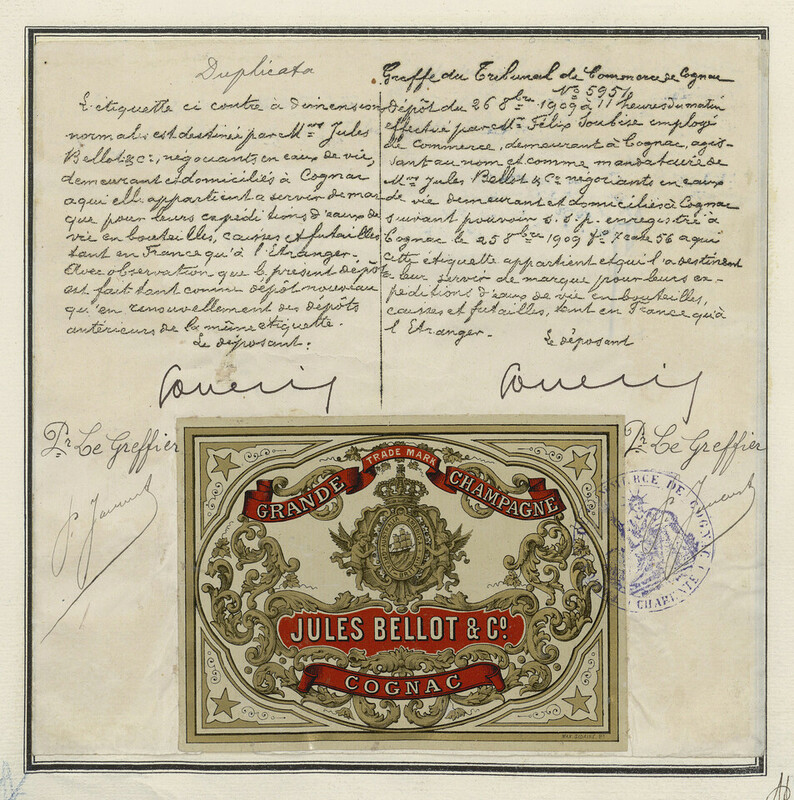 Duplicata
L'étiquette ci contre à dimension
normale est destinée par Mrs Jules
Bellot & Cie, négociants en eaux de vie,
demeurant et domiciliés à Cognac
a qui elle appartient a servir de mar
que pour leurs expéditions d'eaux de
vie en bouteilles, caisses et futailles
tant en France qu'à l'Etranger.
Avec observation que le présent dépôt
est fait tant comme dépôt nouveau
qu'en renouvellement des dépôts
antérieurs de la même étiquette.
Le déposant:
Pr Le Greffier
Greffe du Tribunal de Commerce de Cognac
No 5951
Dépôt du 26 8bre 1909 à 11 heures du matin
effectué par Mr Félix Soubise employé
de Commerce, demeurant à Cognac, agis-
sant au nom et comme mandataire de
Mrs Jules Bellot & Co négociants en eaux
de vie demeurant et domiciliés à Cognac
suivant pouvoir s.s.p. enregistré à
Cognac le 25 8bre 1909 fo 7 case 56 a qui
cette étiquette appartient et qui l'a destinent
a leur servir de marque pour leurs ex-
péditions d'eaux de vie en bouteilles,
caisses et futailles, tant en France qu'à
l'Etranger.
Le déposant
Pr Le Greffier
TRADE MARK
GRANDE CHAMPAGNE
JULES BELLOT & Co.
COGNAC
COMMERCE DE COGNAC
CHARENTE